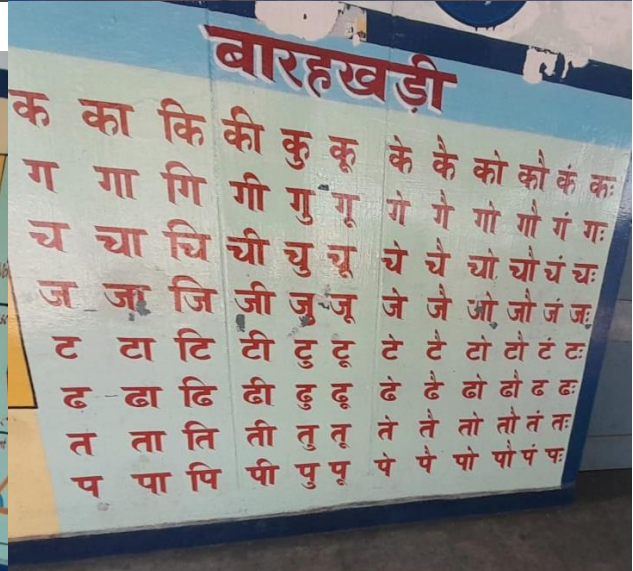 बारहखड़ी
क का कि की कु कू के कै को कौ कं कः
ग गा गि गी गु गू गे गै गो गौ गं गः
च चा चि ची चु चू चे चै चो चौ चं चः
ज जा जि जी जु जू जे जै जो जौ जं जः
ट टा टि टी टु टू टे टै टो टौ टं टः
ढ ढा ढि ढी ढु ढू ढे ढै ढो ढौ ढ ढः
त ता ति ती तु तू ते तै तो तौ तं तः
प पा पि पी पु पू पे पै पो पौ पं पः